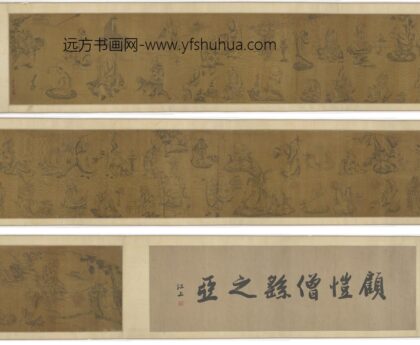 远方书画网-www.yfshuhua.com
顧愷僧繇之亞
江上